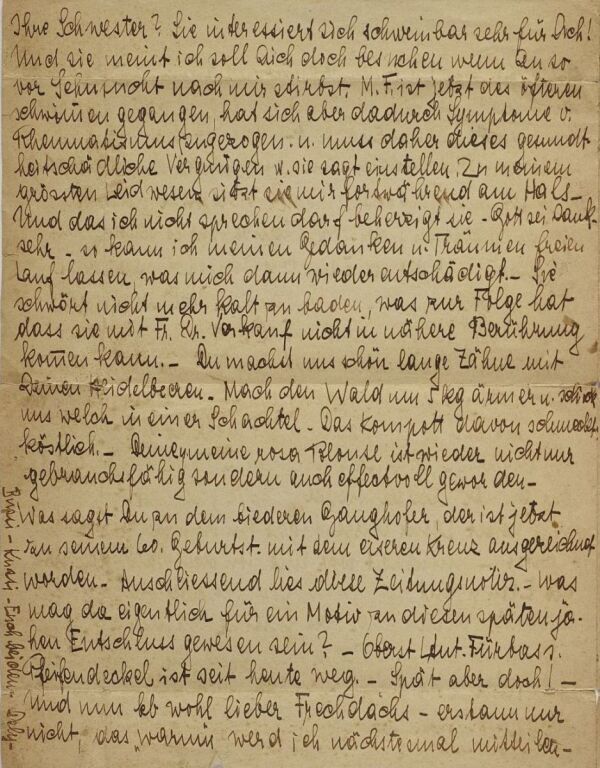 Ihre Schwester? Sie interessiert sich scheinbar sehr für Dich!
Und sie meint ich soll Dich doch besuchen wenn Du so
vor Sehnsucht nach mir stirbst. M. F. ist jetzt des öfteren
schwimen gegangen, hat sich aber dadurch Symptome v.
Rheumatismus zugezogen u. muss daher dieses gesund
heitschädliche Vergnügen w. sie sagt einstellen. Zu meinem
grössten Leidwesen sitzt sie mir fortwährend am Hals –
Und das ich nicht sprechen darf beherzigt sie – Gott sei Dank –
sehr – so kann ich meinen Gedanken u. Träumen freien
Lauf lassen, was mich dann wieder entschädigt. – Sie
schwört nicht mehr kalt zu baden, was zur Folge hat
dass sie mit Fr. Dr. Verkauf nicht in nähere Berührung
komen kann. – Du machst uns schön lange Zähne mit
Deinen Heidelbeeren – Mach den Wald um 5 kg ärmer u. schick
uns welch in einer Schachtel – Das Kompott davon schmeckt
köstlich. – meine rosa Blouse ist wieder nicht nur
gebrauchsfähig sondern auch effectvoll geworden –
Was sagst Du zu dem biederen Ganghofer, der ist jetzt
zu seinem 60. Geburtst. mit dem eiseren Kreuz ausgezeichnet
worden – Anschliessend lies diese Zeitungsnotiz. – was
mag da eigentlich für ein Motiv zu diesen späten jä-
hen Entschluss gewesen sein? – Oberst Lnt. Fürbass s.
Pfeifendeckel ist seit heute weg. – Spät aber doch! –
Und nun leb wohl lieber Frechdachs – erstaun nur
nicht, das "warum" werd ich nächstemal mitteilen –